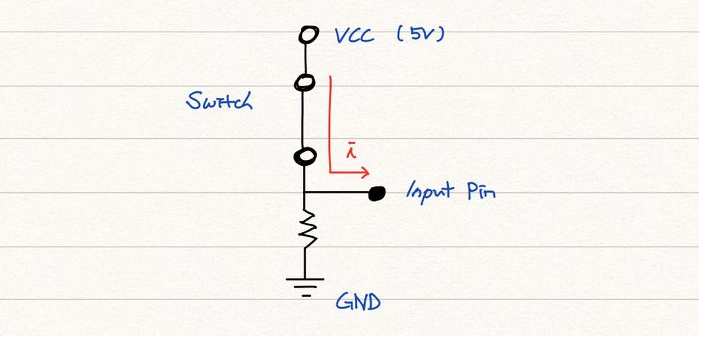 VCC (5V)
Switch
i
Input Pin
GND